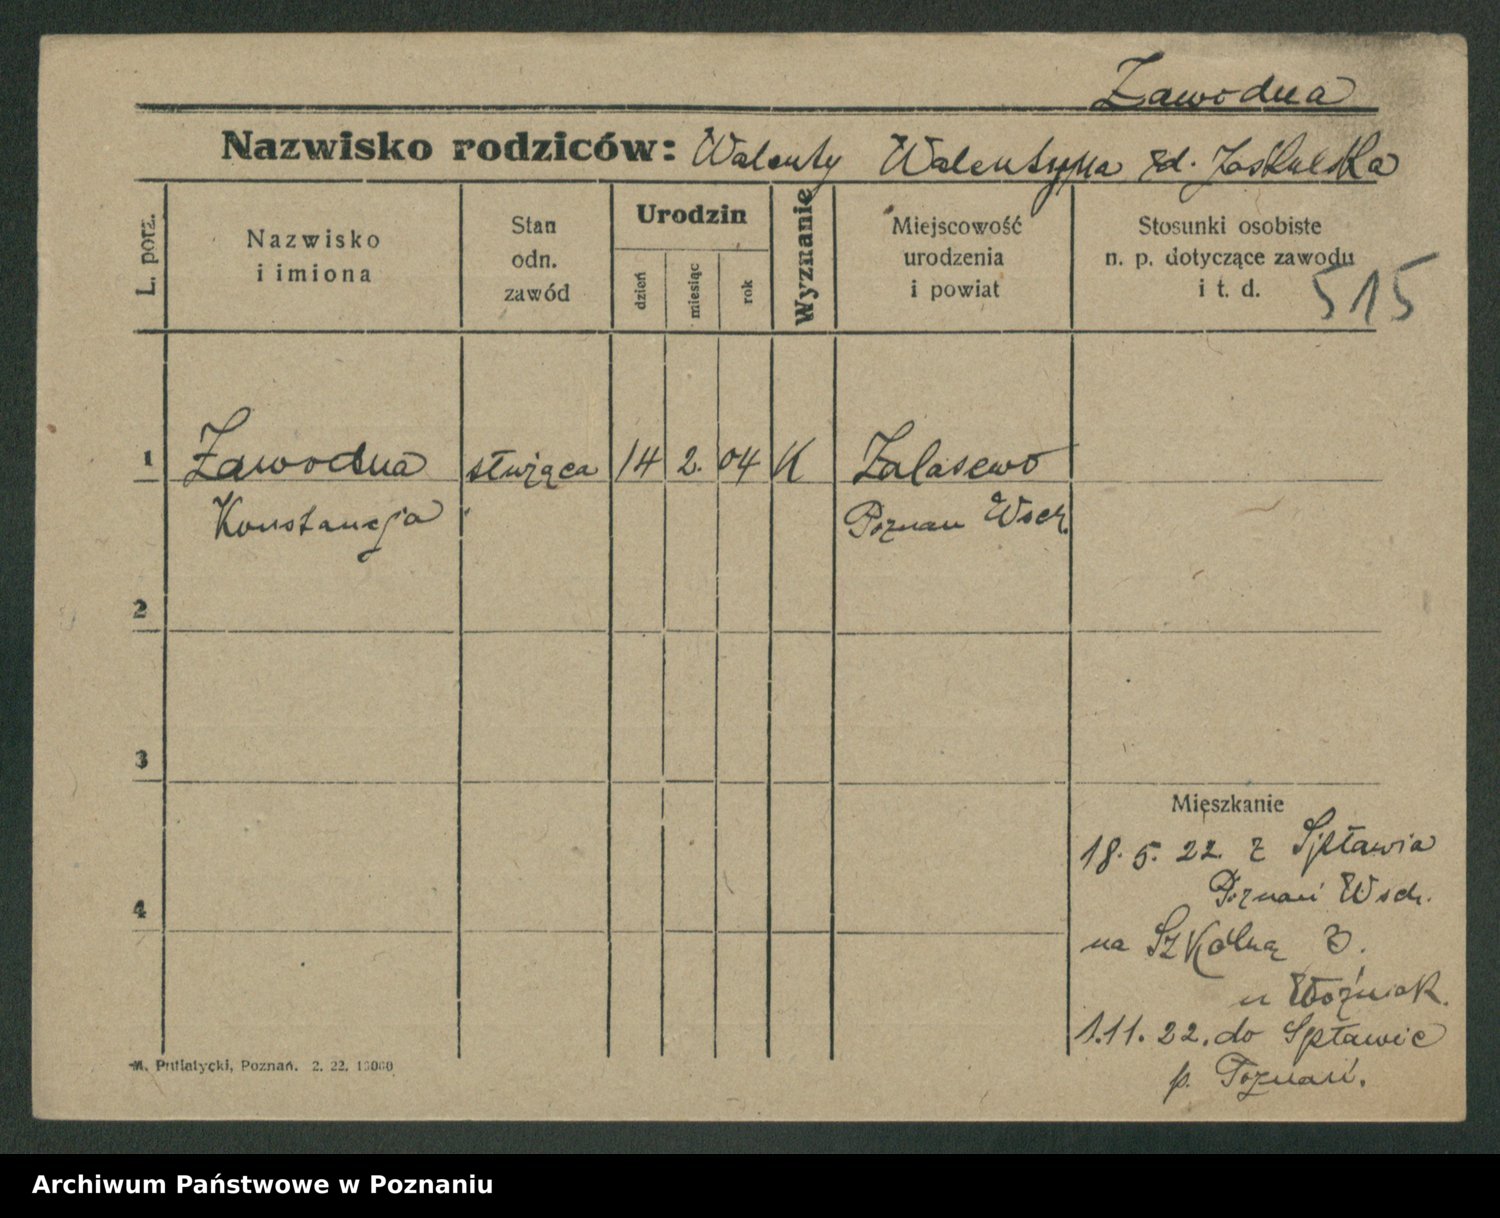 Zawodna
Nazwisko rodziców: Walenty Walentyna zd. Jaskulska
L. porz.
Nazwisko
i imiona
Stan
odn.
zawód
Urodzin
dzień
miesiąc
rok
Wyznanie
Miejscowość
urodzenia
i powiat
Stosunki osobiste
n. p. dotyczące zawodu
i t. d.
515
1 Zawodna służąca 14 2. 04 K Zalasewo
Konstancja Poznan Wsch.
2
3
Mieszkanie
18. 5. 22. z Spławia
4 Poznań Wsch.
na Szkolną 3.
u Woźniak.
1.11. 22. do Spławie
p. Poznań.
M. Putiatycki, Poznań. 2. 22. 13000
Archiwum Państwowe w Poznaniu